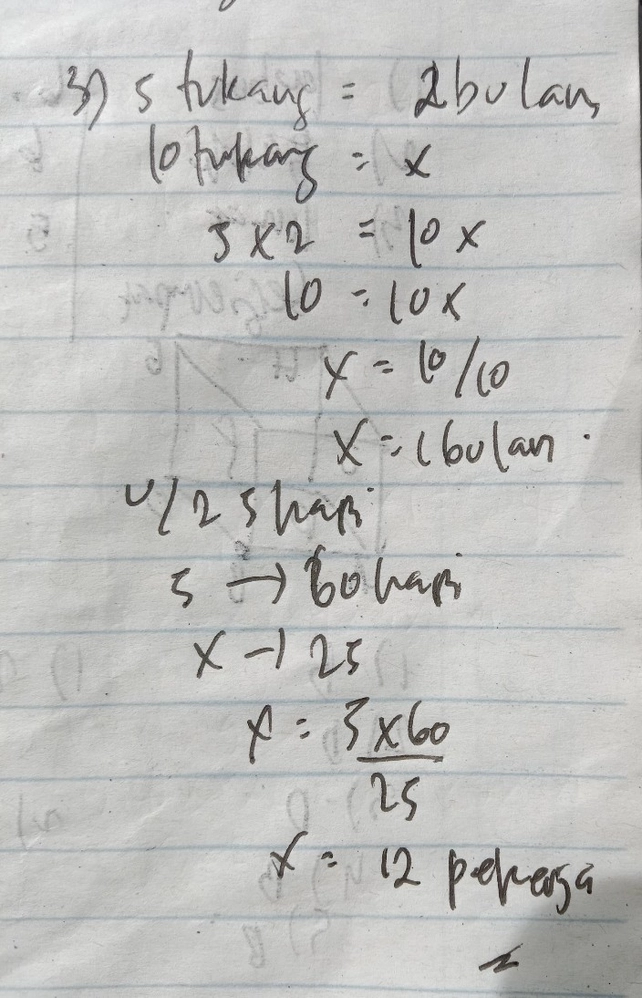 3) 5 tukang = 2 bulan
10 tukang = x
5 x 2 = 10 x
10 = 10x
x = 10/10
x = 1 bulan.
u/ 25 hari
5 → 60 hari
x → 25
x = 5 x 60
25
x = 12 pekerja